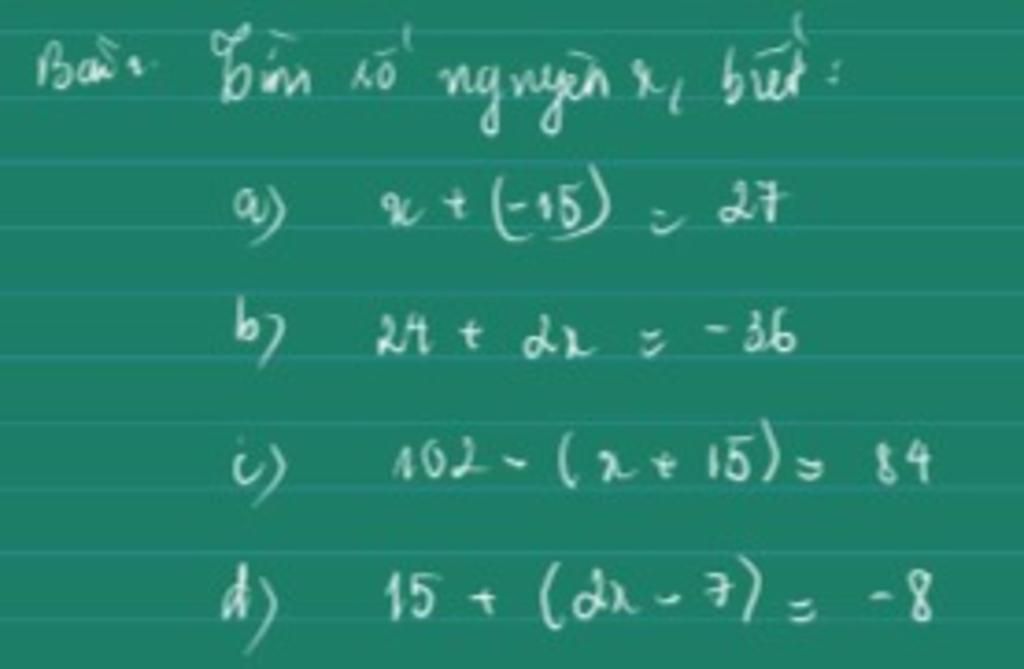 Bài 2 Tìm số nguyên x, biết:
a) x + (-15) = 27
b) 24 + 2x = -36
c) 102 - (x + 15) = 84
d) 15 + (2x - 7) = -8